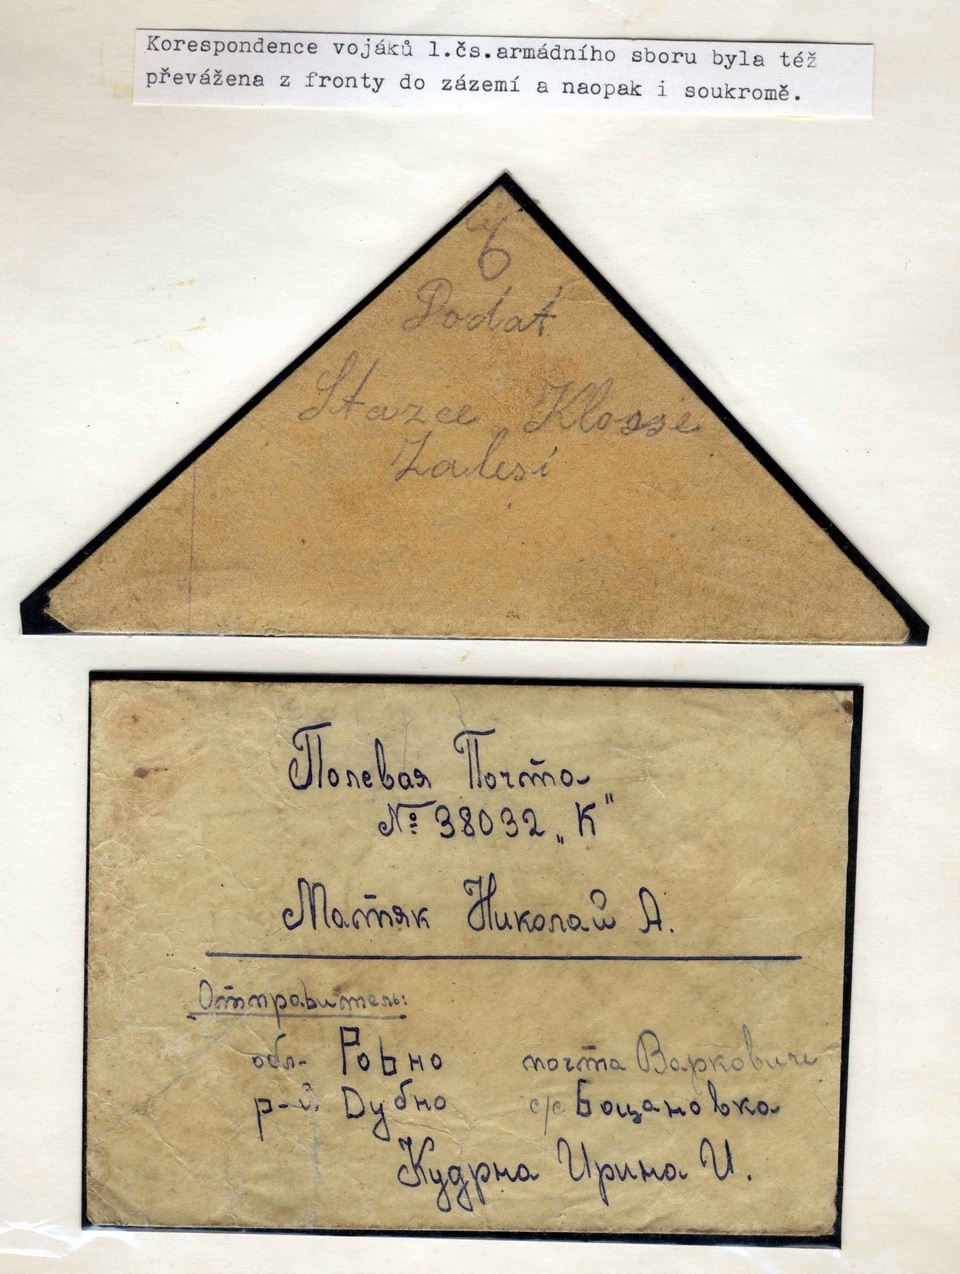 Korespondence vojáků 1.čs.armádního sboru byla též
převážena z fronty do zázemí a naopak i soukromě.
Podat
Stazce Klosse
Zalesí
Полевая Почта
№ 38032 „К"
Матяк Николай А.
Отправитель:
обл- Ровно почта Варковичи
р-й. Дубно с/с Боцановка
Кудрна Ирина И.